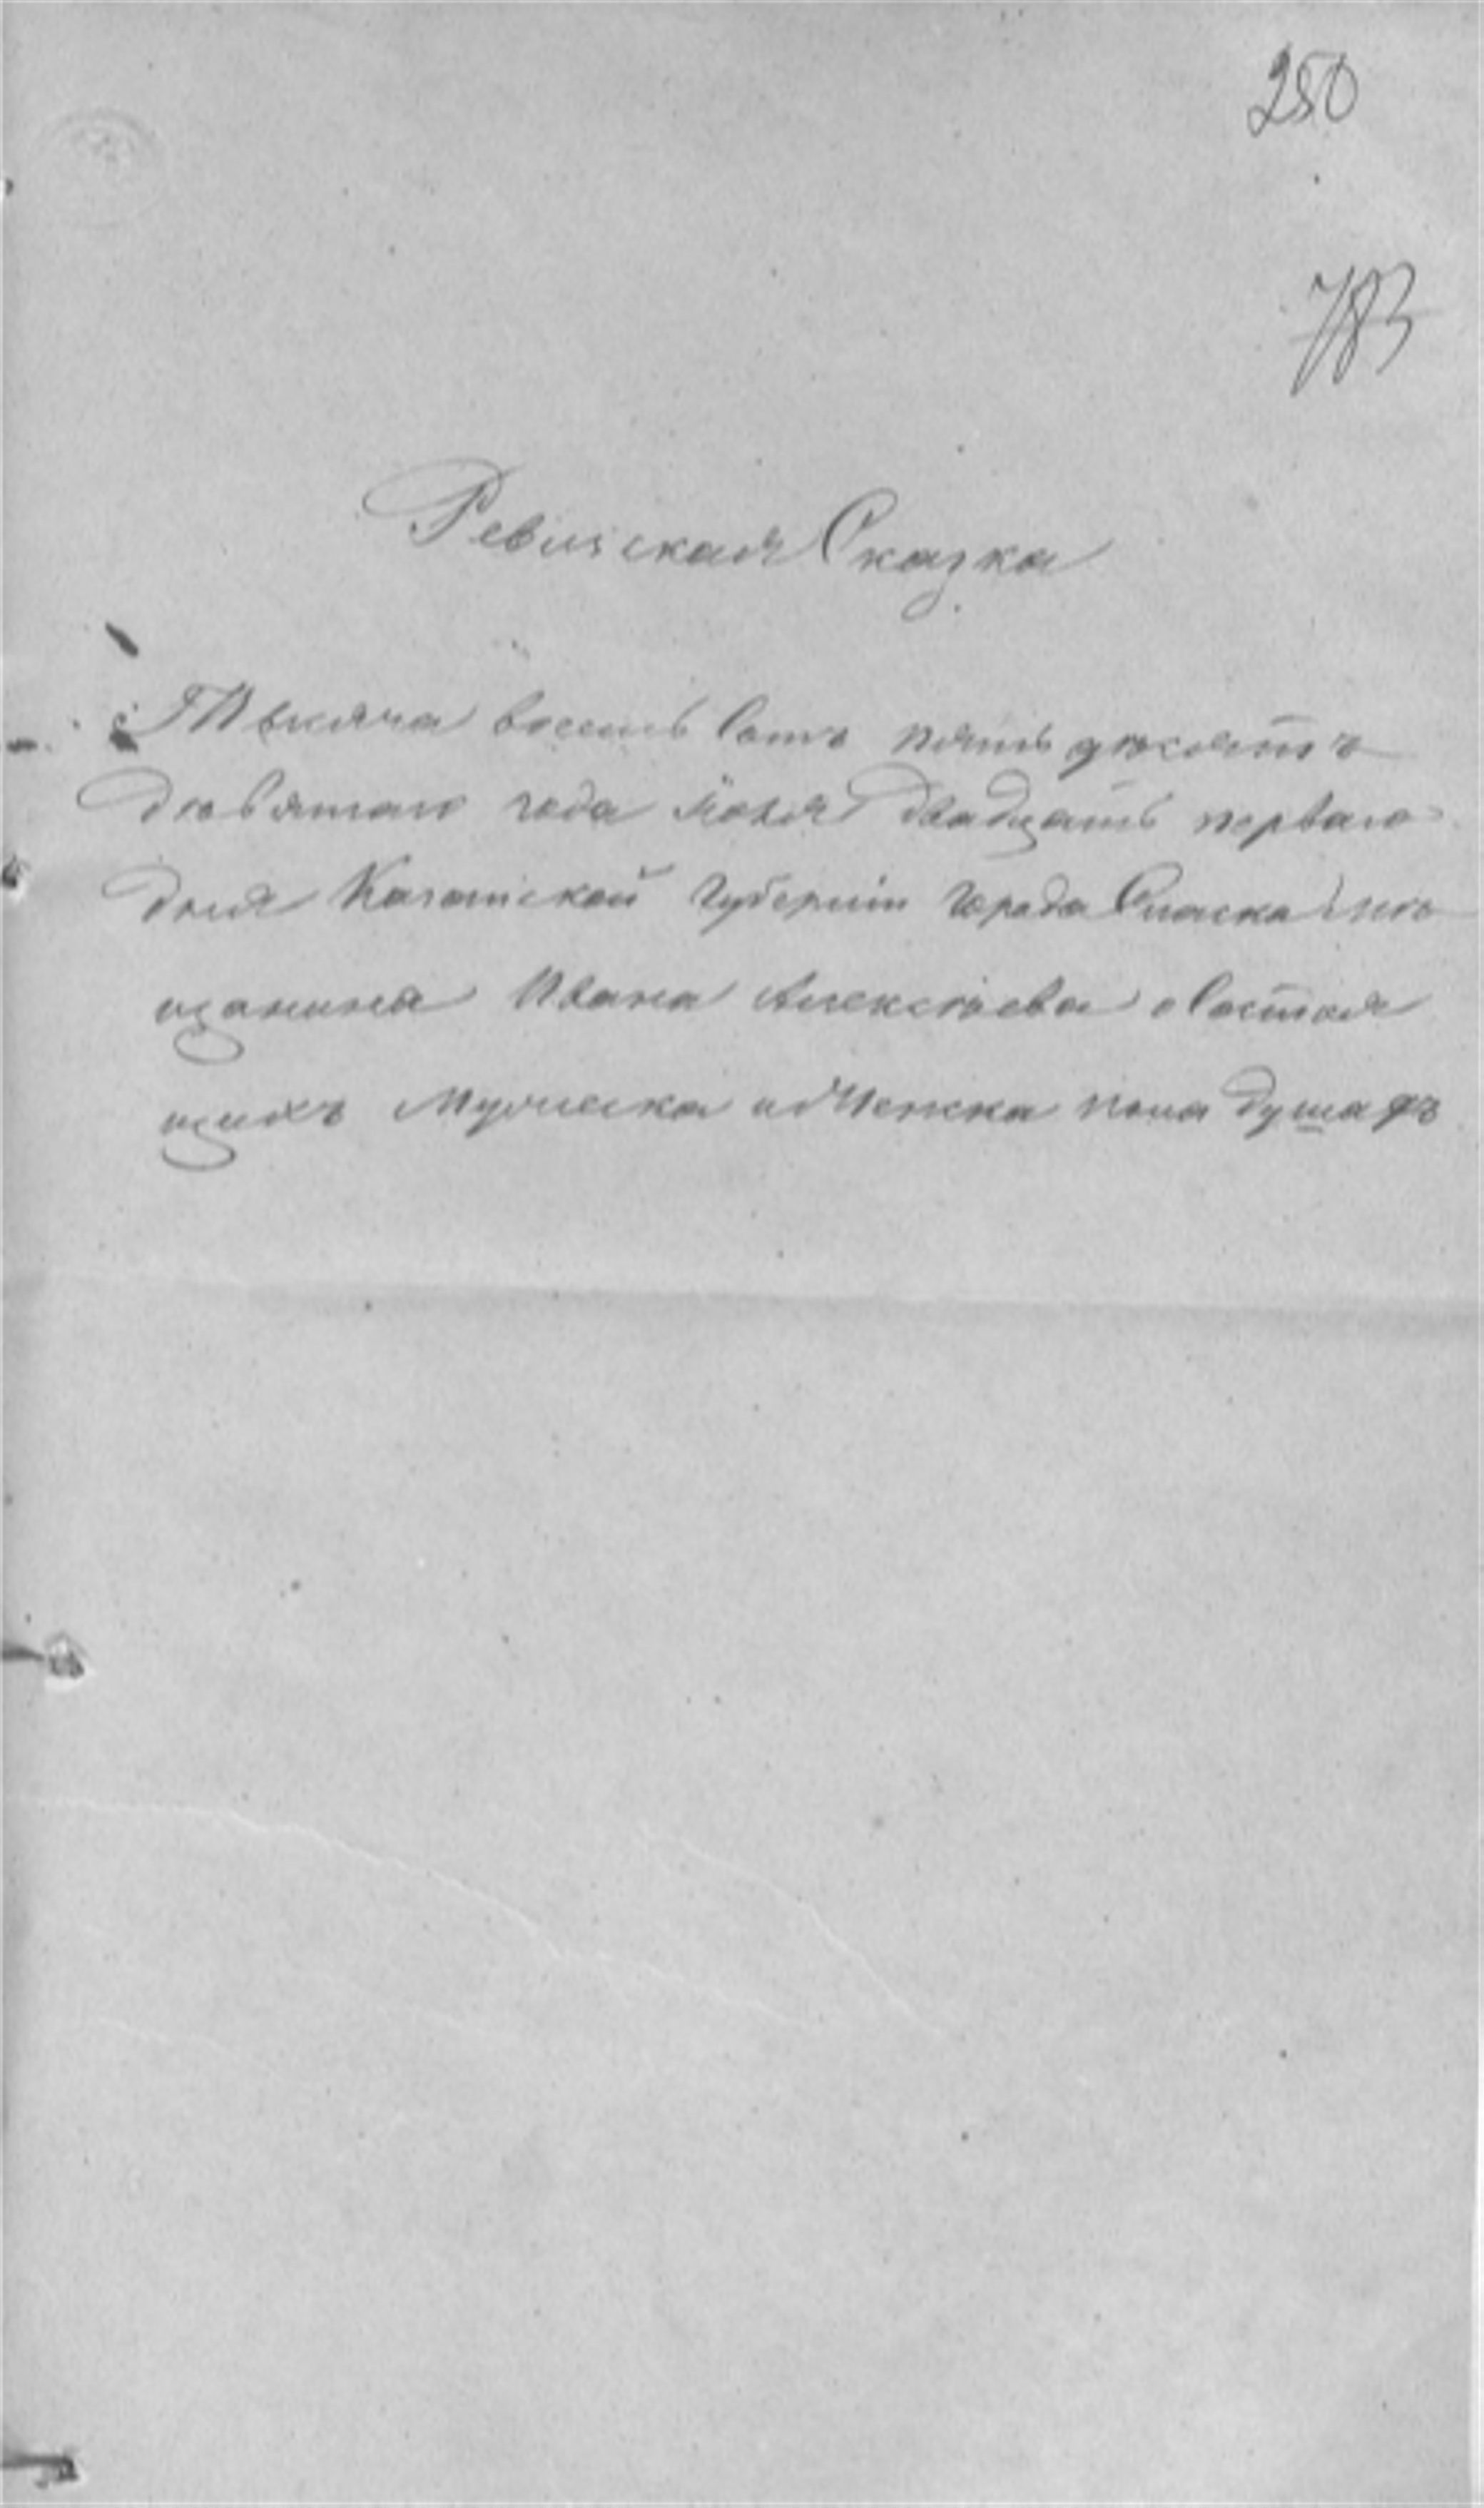 250
783
Ревиская Сказка
Тысяча восемь сотъ пять десятъ
девятаго года Маия двадцать перваго
дня Казанской губернiи города Спаска мѣ
щанина Ивана Алексѣева о состоя
щихъ Мужеска и Женска пола душахъ